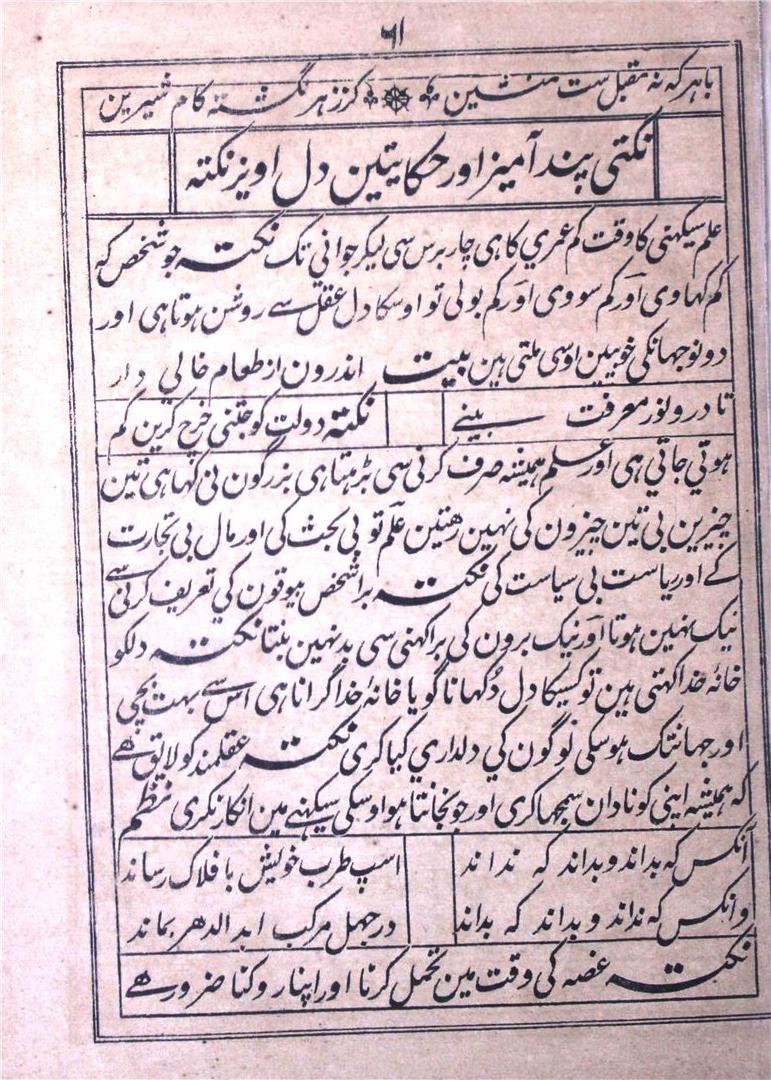 ٦١
باهرکه نه مقبل ست منشین کز زهر نگشته کام شیرین
نکتی پند آمیز اور حکایتین دل اویز نکته
علم سیکهنی کا وقت کم عمري کا هی چار برس سی لیکر جوانی تک نکته جو شخص که
کم کهاوی اور کم سووی اور کم بولی تو اوسکا دل عقل سے روشن هوتا هی اور
دونو جهانکی خوبیین اوسی ملتی هین بیت اندرون از طعام خالي دار
تا درو نور معرفت بینے نکته دولت کو جتنی خرچ کرین کم
هوتي جاتي هی اور علم همیشه صرف کرنی سی بڑهتا هی بزرگون نی کها هی تین
چیزین بی تین چیزون کی نهین رهتین علم تو بی بحث کی اور مال بی تجارت
کے اور ریاست بی سیاست کی نکته برا شخص بیوقون کي تعریف کرنی سے
نیک نهین هوتا اور نیک برون کی برا کهنی سی بد نهین بنتا نکته دلکو
خانهٔ خدا کهتی هین تو کسیکا دل دُکهانا گویا خانهٔ خدا گرانا هی اس سے بهت بچی
اور جهانتک هوسکی لوگون کي دلداري کیا کری نکته عقلمند کو لایق هے
که همیشه اپنی کو نادان سمجها کری اور جو نجانتا هو اوسکی سیکهنے مین انکار نکری نظم
آنکس که بداند و بداند که نداند اسپ طرب خویش بافلاک رساند
وانکس که نداند و بداند که بداند در جهل مرکب ابد الدهر بماند
نکته غصه کی وقت مین تحمل کرنا اور اپنا روکنا ضرور هے